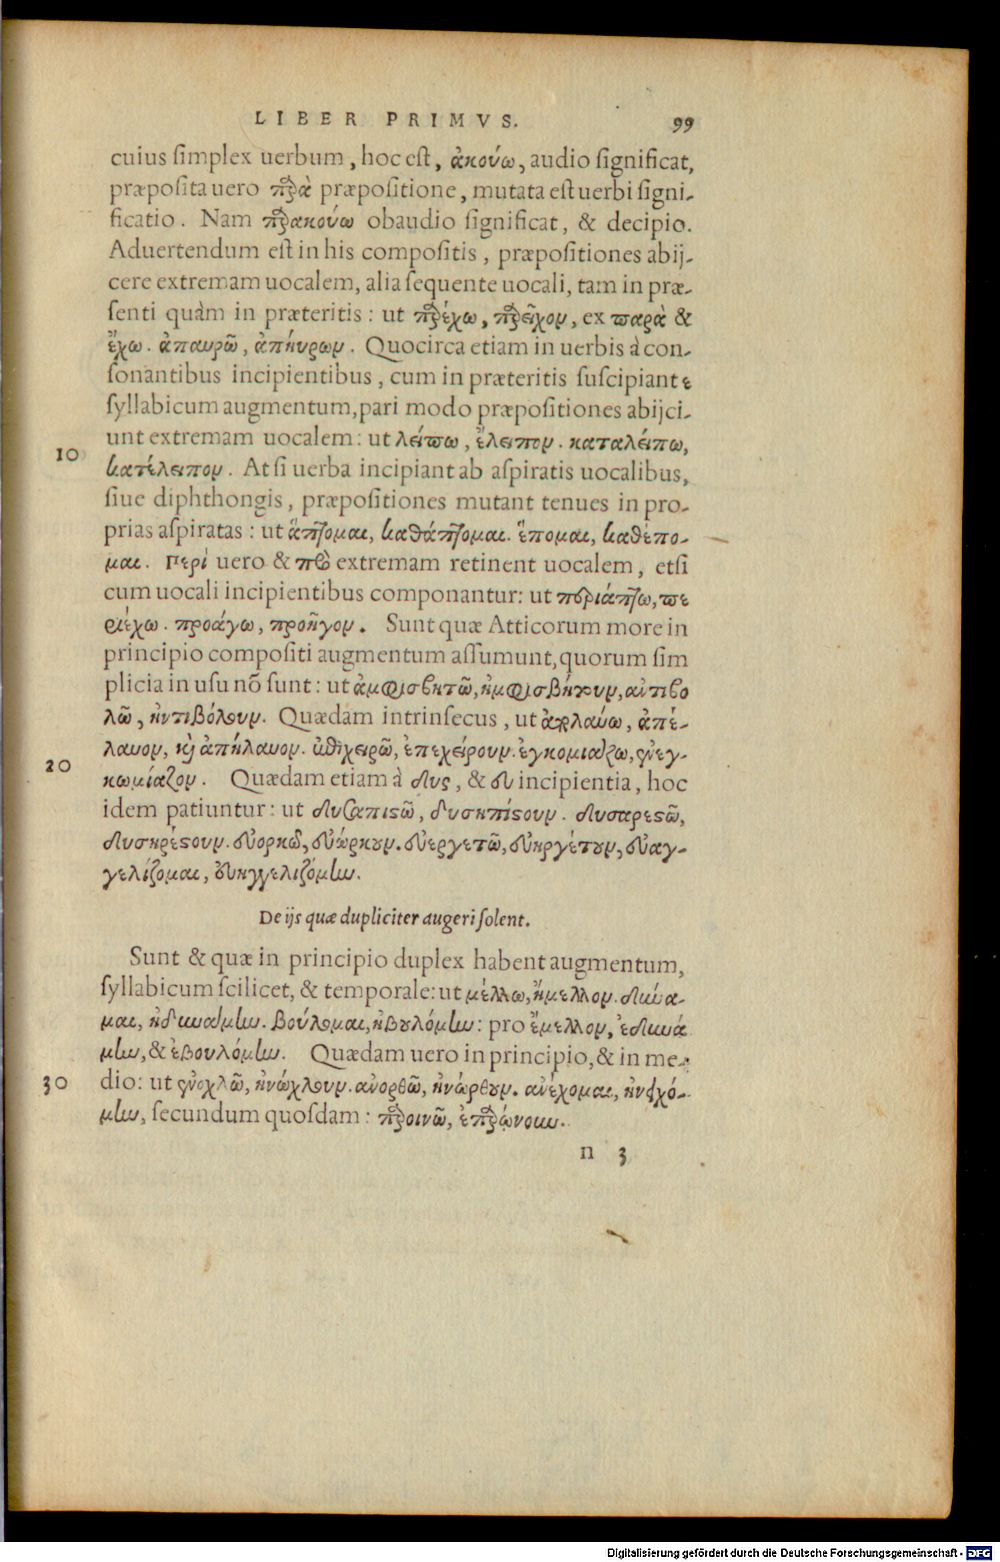 LIBER PRIMVS. 99
cuius simplex uerbum, hoc est, ἀκούω, audio significat,
præposita uero παρὰ præpositione, mutata est uerbi signi-
ficatio. Nam παρακούω obaudio significat, & decipio.
Aduertendum est in his compositis, præpositiones abij-
cere extremam uocalem, alia sequente uocali, tam in præ-
senti quàm in præteritis: ut παρέχω, παρεῖχον, ex παρὰ &
ἔχω. ἀπαυρῶ, ἀπηύρων. Quocirca etiam in uerbis à con-
sonantibus incipientibus, cum in præteritis suscipiant
syllabicum augmentum, pari modo præpositiones abijci-
unt extremam uocalem: ut λείπω, ἔλειπον. καταλείπω,
10
κατέλειπον. At si uerba incipiant ab aspiratis uocalibus,
siue diphthongis, præpositiones mutant tenues in pro-
prias aspiratas: ut ἅπτομαι, καθάπτομαι. ἕπομαι, καθέπο-
μαι. Περὶ uero & πρὸ extremam retinent uocalem, etsi
cum uocali incipientibus componantur: ut περιάπτω, πε
ριέχω. προάγω, προῆγον. Sunt quæ Atticorum more in
principio compositi augmentum assumunt, quorum sim
plicia in usu nõ sunt: ut ἀμφισβητῶ, ἠμφισβήτουν, ἀντιβο
λῶ, ἠντιβόλουν. Quædam intrinsecus, ut ἀπολαύω, ἀπέ-
λαυον, καὶ ἀπήλαυον. ἐπιχειρῶ, ἐπεχείρουν. ἐγκομιάζω, ἐνεγ-
20
κωμίαζον. Quædam etiam à δυς, & ευ incipientia, hoc
idem patiuntur: ut δυσαπιστῶ, δυσηπίστουν. δυσαρεστῶ,
δυσηρέστουν. εὐορκῶ, εὐώρκουν. εὐεργετῶ, εὐηργέτουν, εὐαγ-
γελίζομαι, εὐηγγελιζόμην.
De ijs quæ dupliciter augeri solent.
Sunt & quæ in principio duplex habent augmentum,
syllabicum scilicet, & temporale: ut μέλλω, ἤμελλον. δύνα-
μαι, ἠδυνάμην. βούλομαι, ἠβουλόμην: pro ἔμελλον, ἐδυνά
μην, & ἐβουλόμην. Quædam uero in principio, & in me-
30
dio: ut ἐνοχλῶ, ἠνώχλουν. ἀνορθῶ, ἠνώρθουν. ἀνέχομαι, ἠνειχό-
μην, secundum quosdam: παροινῶ, ἐπαρῴνουν.
n 3
Digitalisierung gefördert durch die Deutsche Forschungsgemeinschaft - DFG